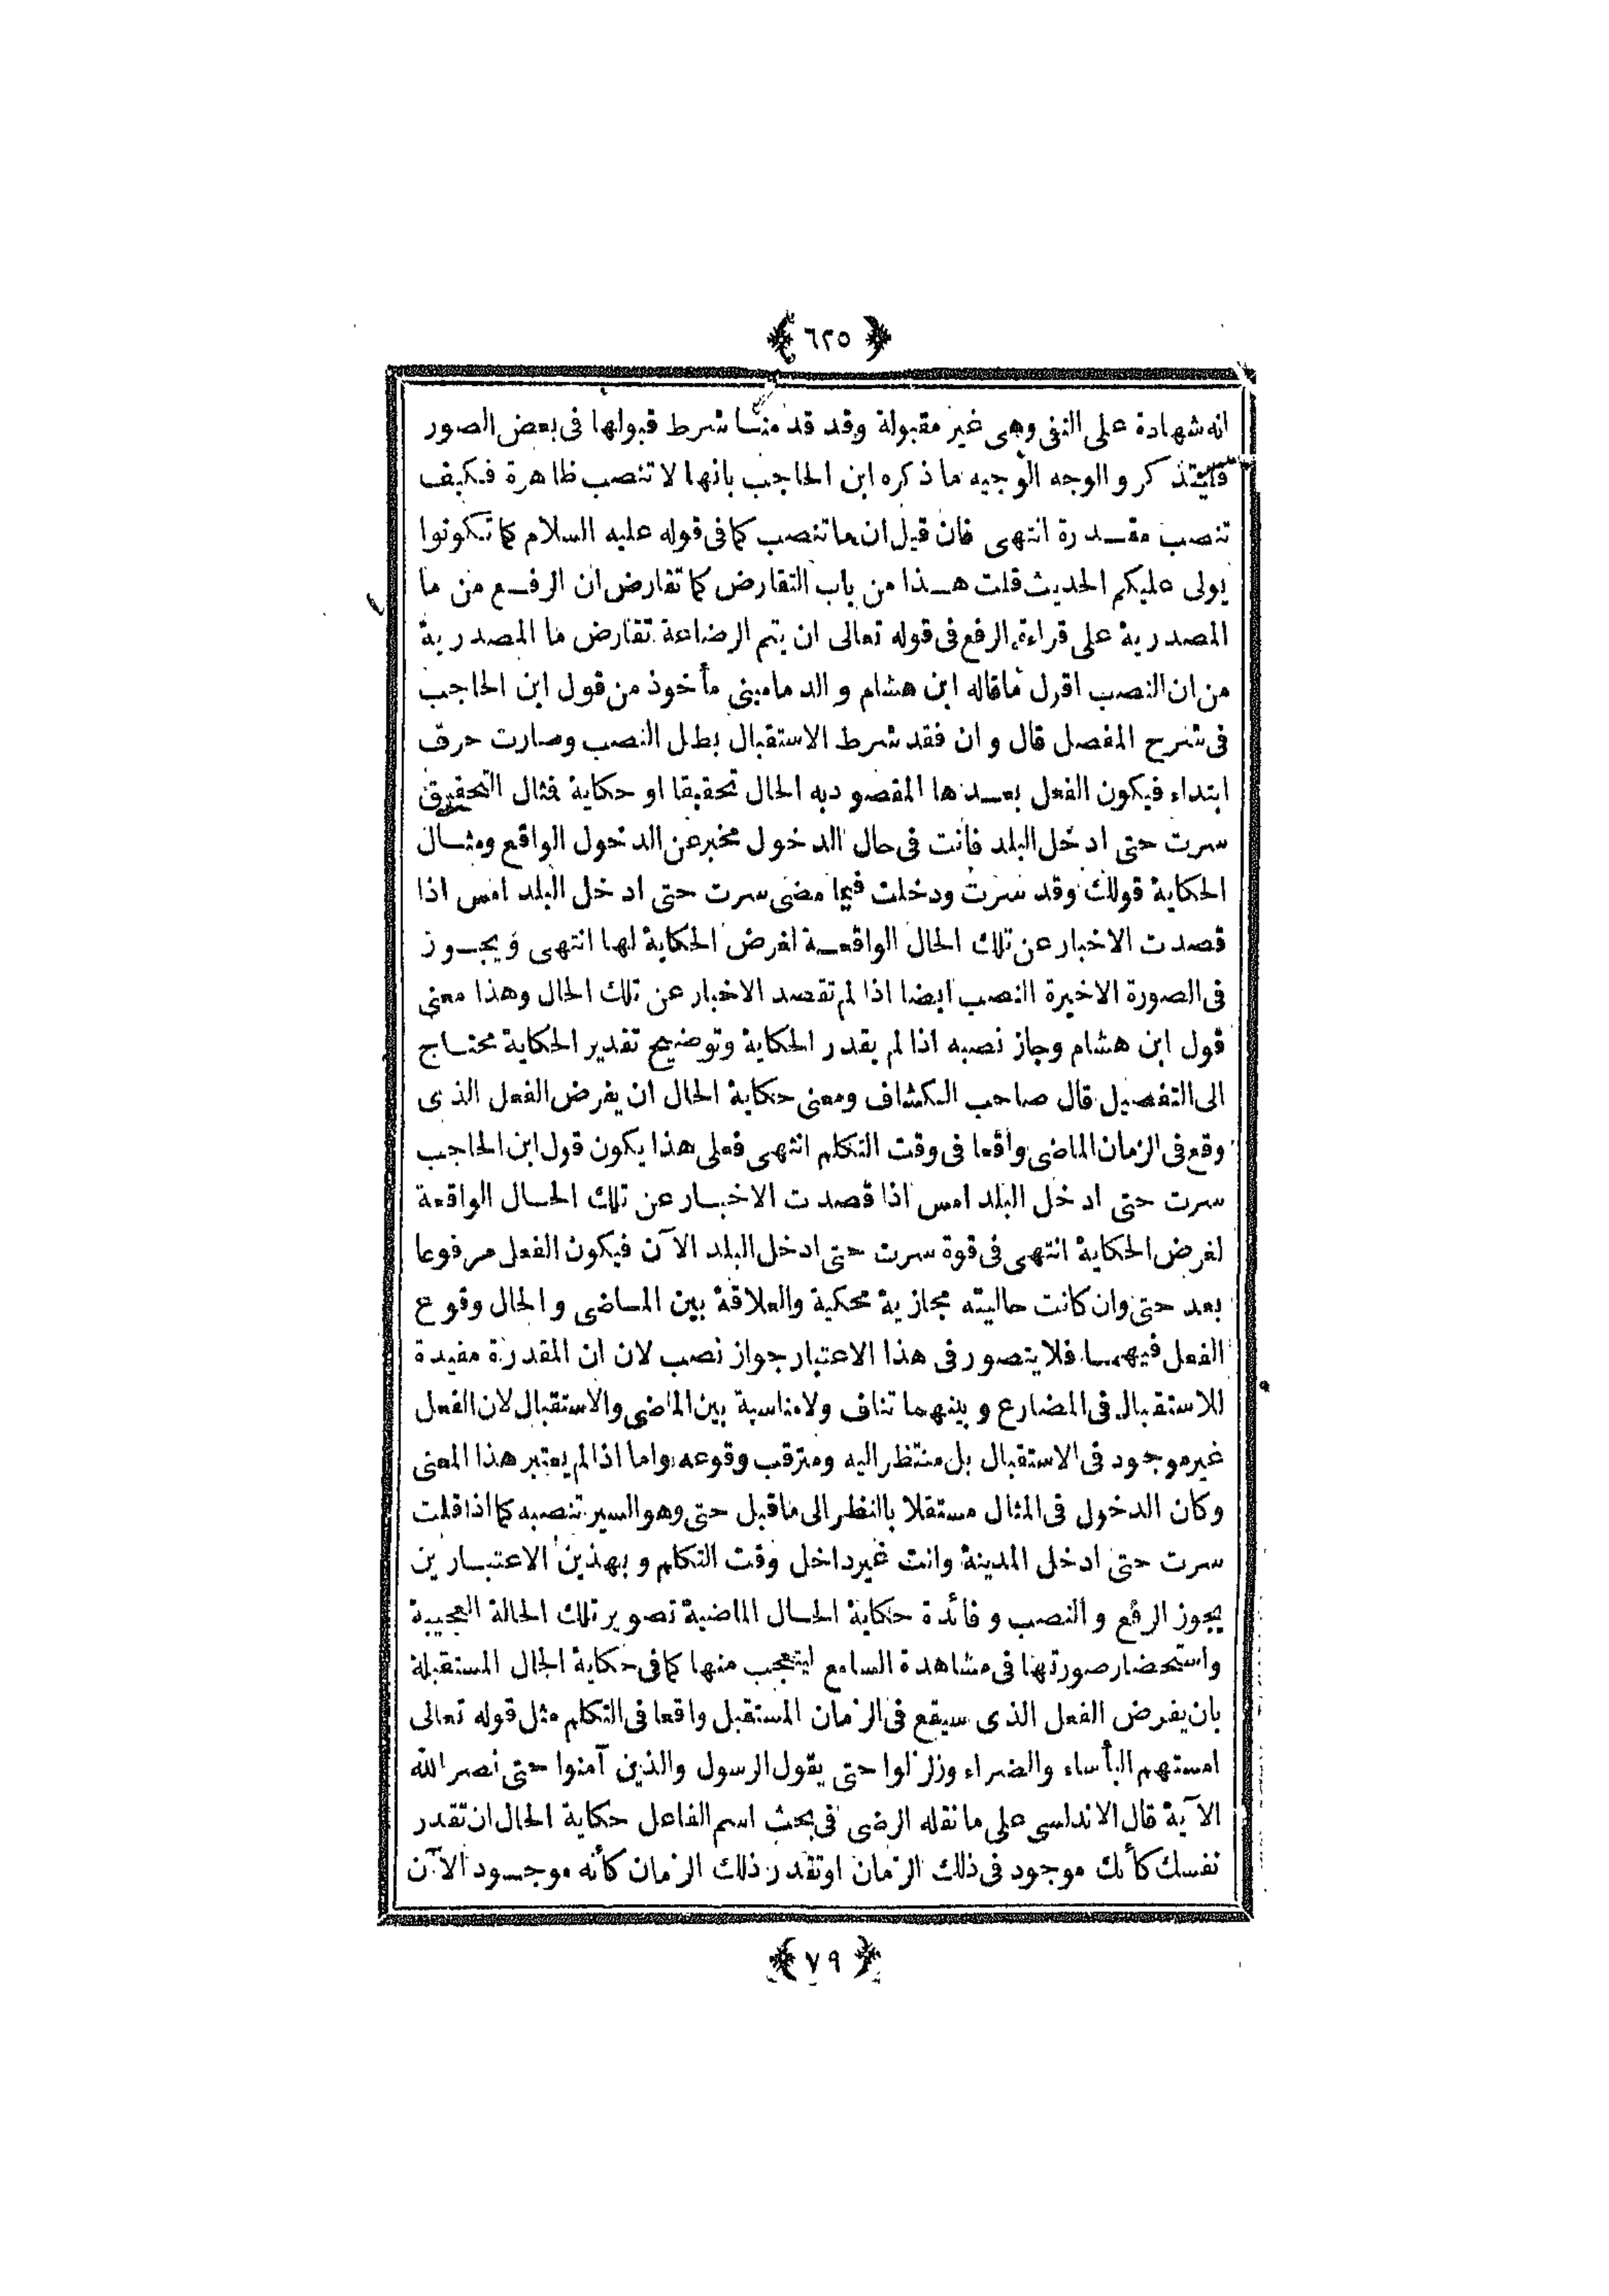 ﴿ ٦٢٥ ﴾
انه شهادة على النفى وهى غير مقبولة وقد قدمنا شرط قبولها فى بعض الصور
فليتذكر والوجه الوجيه ما ذكره ابن الحاجب بانها لا تنصب ظاهرة فكيف
تنصب مقدرة انتهى فان قيل ان ما تنصب كما فى قوله عليه السلام كما تكونوا
يولى عليكم الحديث قلت هذا من باب التقارض كما تقارض ان الرفع من ما
المصدرية على قراءة الرفع فى قوله تعالى ان يتم الرضاعة تقارض ما المصدرية
من ان النصب اقول ماقاله ابن هشام والدمامينى مأخوذ من قول ابن الحاجب
فى شرح المفصل قال وان فقد شرط الاستقبال بطل النصب وصارت حرف
ابتداء فيكون الفعل بعدها المقصود به الحال تحقيقا او حكاية فثال التحقيق
سرت حتى ادخل البلد فأنت فى حال الدخول مخبر عن الدخول الواقع ومثال
الحكاية قولك وقد سرت ودخلت فيما مضى سرت حتى ادخل البلد امس اذا
قصدت الاخبار عن تلك الحال الواقعة لغرض الحكاية لها انتهى ويجوز
فى الصورة الاخيرة النصب ايضا اذا لم تقصد الاخبار عن تلك الحال وهذا معنى
قول ابن هشام وجاز نصبه اذا لم يقدر الحكاية وتوضيح تقدير الحكاية محتاج
الى التفصيل قال صاحب الكشاف ومعنى حكاية الحال ان يفرض الفعل الذى
وقع فى الزمان الماضى واقعا فى وقت التكلم انتهى فعلى هذا يكون قول ابن الحاجب
سرت حتى ادخل البلد امس اذا قصدت الاخبار عن تلك الحال الواقعة
لغرض الحكاية انتهى فى قوة سرت حتى ادخل البلد الآن فيكون الفعل مرفوعا
بعد حتى وان كانت حاليته مجازية محكية والعلاقة بين الماضى والحال وقوع
الفعل فيهما فلا يتصور فى هذا الاعتبار جواز نصب لان ان المقدرة مفيدة
للاستقبال فى المضارع وبينهما تناف ولا مناسبة بين الماضى والاستقبال لان الفعل
غير موجود فى الاستقبال بل منتظر اليه ومترقب وقوعه واما اذا لم يعتبر هذا المعنى
وكان الدخول فى المثال مستقلا بالنظر الى ماقبل حتى وهو السير تنصبه كما اذا قلت
سرت حتى ادخل المدينة وانت غير داخل وقت التكلم وبهذين الاعتبارين
يجوز الرفع والنصب وفائدة حكاية الحال الماضية تصوير تلك الحالة العجيبة
واستحضار صورتها فى مشاهدة السامع ليتعجب منها كما فى حكاية الحال المستقبلة
بان يفرض الفعل الذى سيقع فى الزمان المستقبل واقعا فى التكلم مثل قوله تعالى
امستهم البأساء والضراء وزلزلوا حتى يقول الرسول والذين آمنوا حتى نصر الله
الآية قال الاندلسى على مانقله الرضى فى بحث اسم الفاعل حكاية الحال ان تقدر
نفسك كأنك موجود فى ذلك الزمان اوتقدر ذلك الزمان كأنه موجود الآن
﴿ ٧٩ ﴾